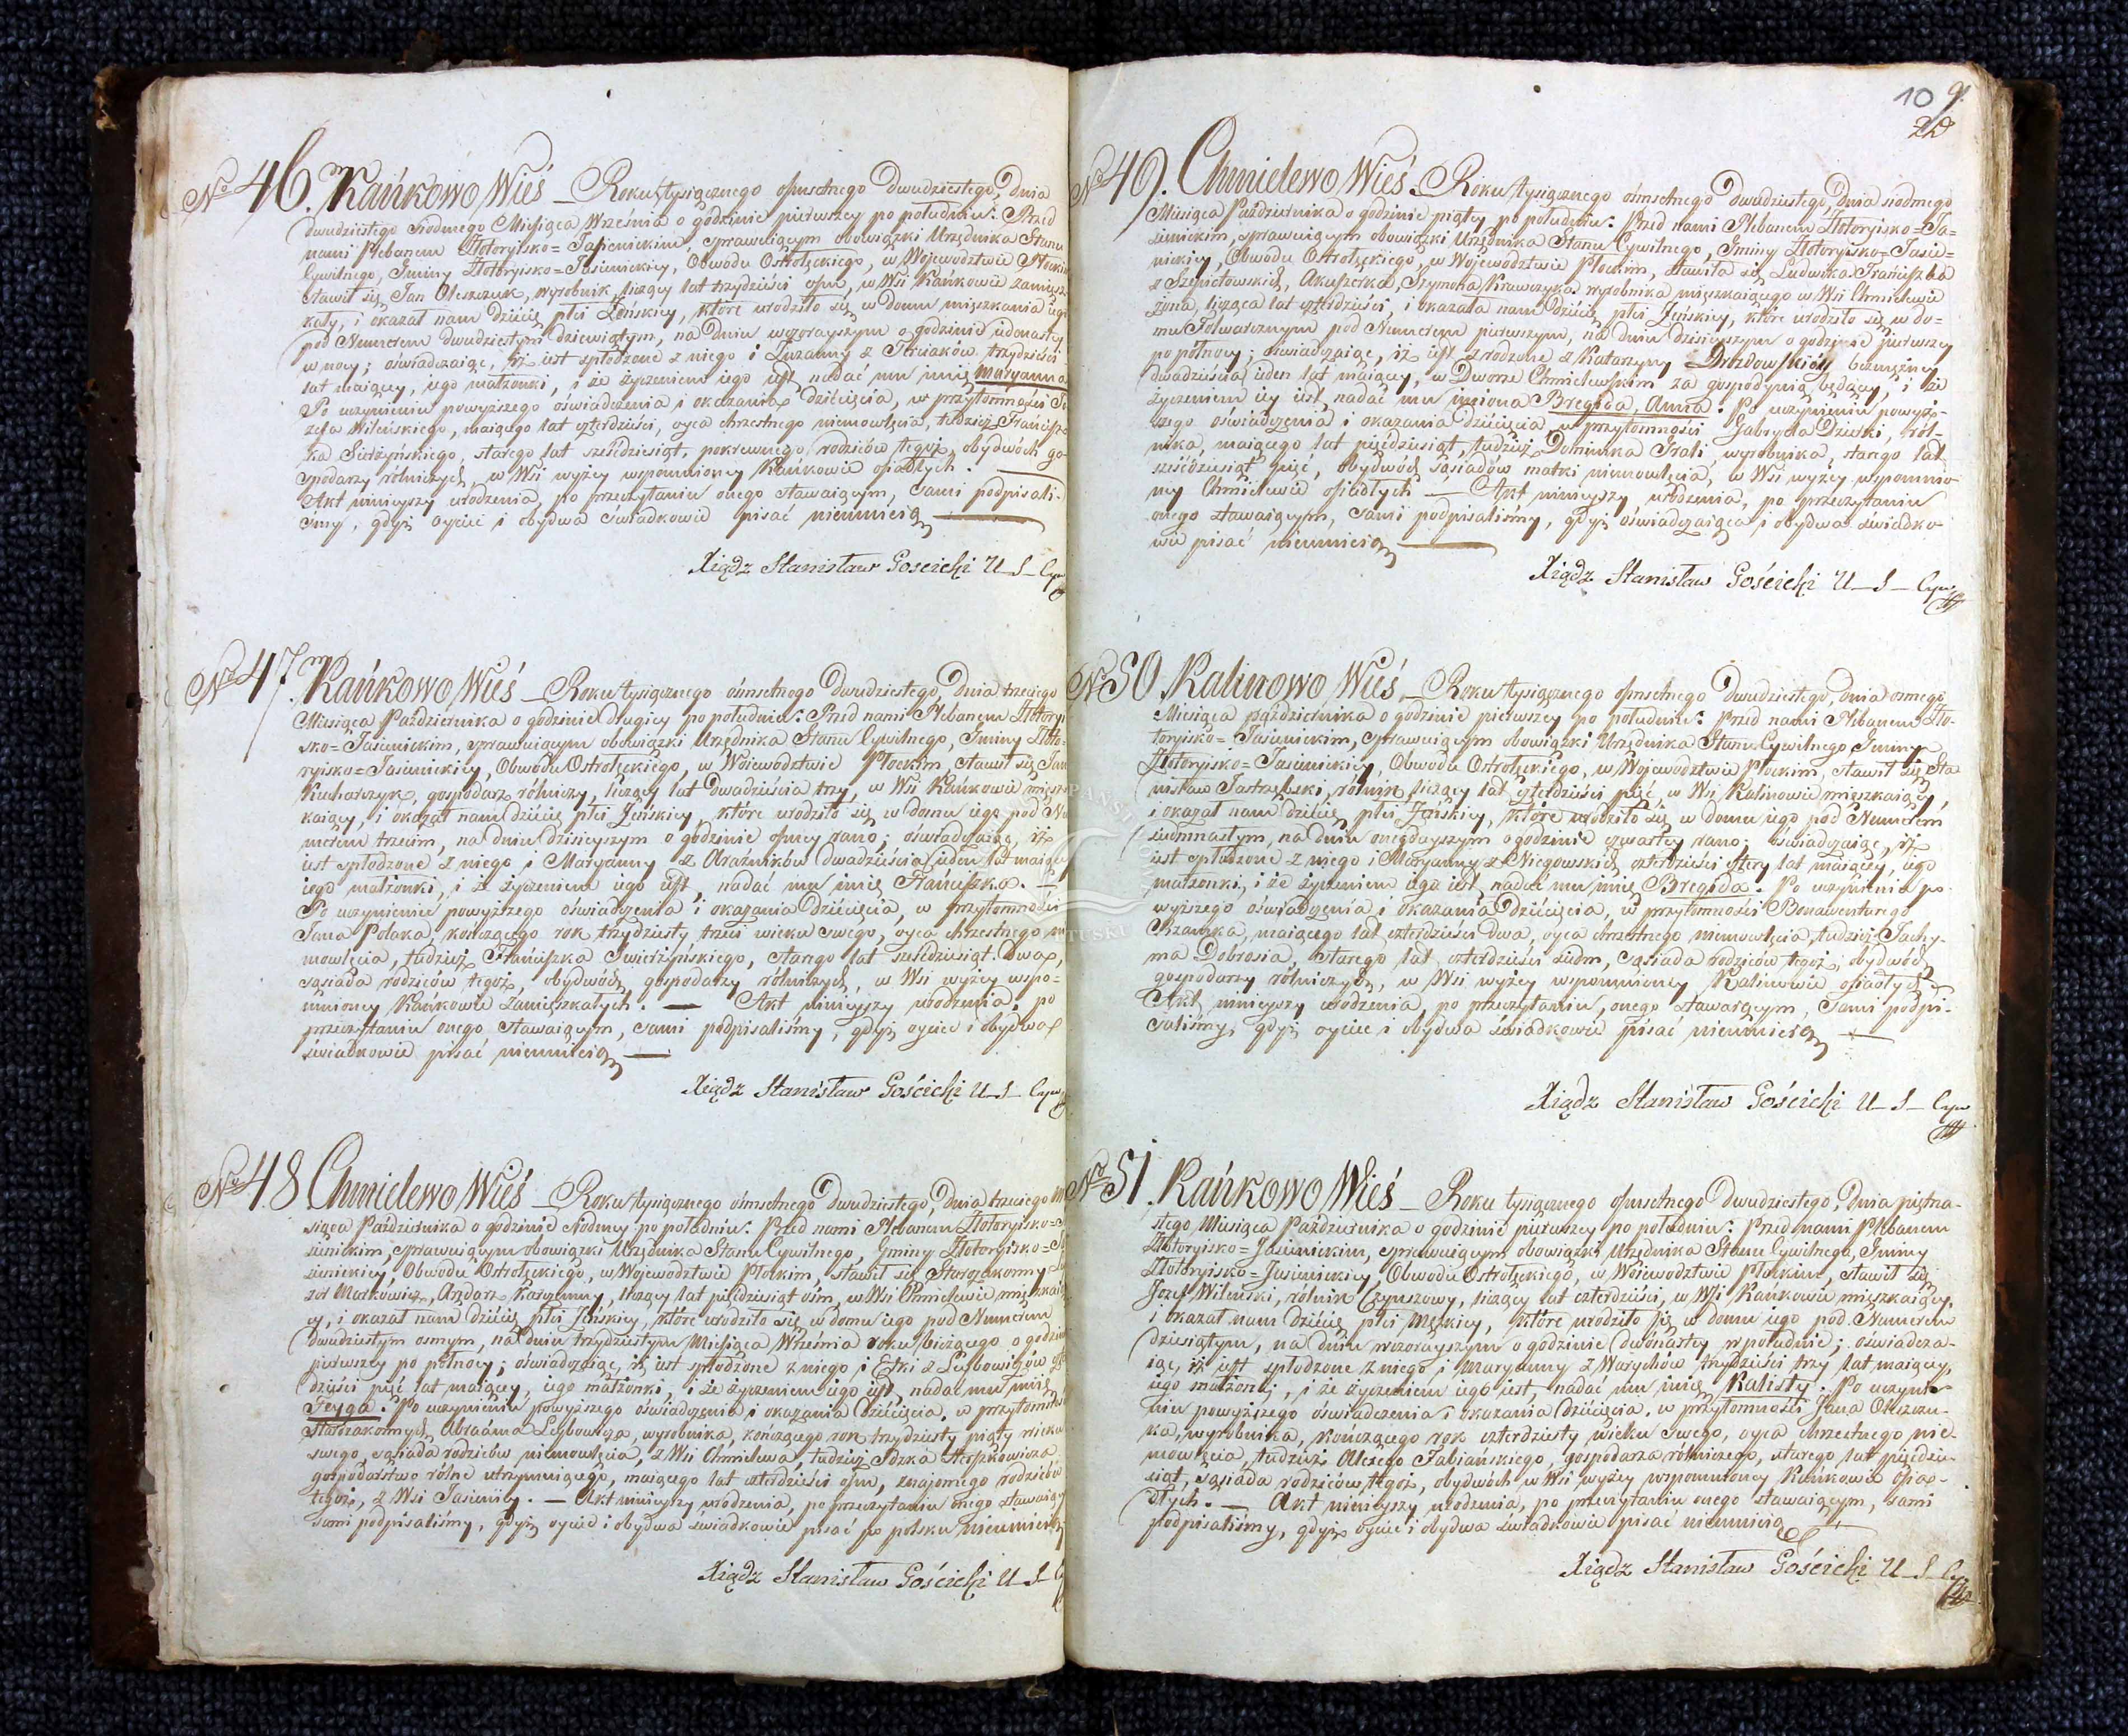 No 46. Kańkowo Wieś _ Roku tysiącznego ośmsetnego Dwudziestego, Dnia
dwudziestego siodmego Miesiąca Września o godzinie pierwszey po południu: Przed
nami Plebanem Złotoryisko=Jasienickim, sprawuiącym obowiązki Urzędnika Stanu
Cywilnego, Gminy Złotoryisko=Jasienickiey, Obwodu Ostrołęckiego, w Województwie Płockim
stawił się Jan Oleszczuk, wyrobnik, liczący lat trzydzieści ośm, w Wsi Kańkowie zamiesz
kały, i okazał nam Dziécię płci Żeńskiey, które urodziło się w domu mięszkania iego
pod Numerem dwudziestym dziewiątym, na dniu wczorayszym o godzinie iedenastey
w nocy; oświadczaiąc, iż iest spłodzone z niego i Zuzanny z Terciaków trzydzieści
lat maiącey, iego małżonki, i że życzeniem iego iest nadać mu imię Maryanna
Po uczynieniu powyższego oświadczenia i okazania Dziécięcia, w przytomności Jó
zefa Wileńskiego, maiącego lat czterdzieści, oyca chrzestnego niemowlęcia, tudzież Francisz
ka Swierżyńskiego, starego lat sześćdziesiąt, pokrewnego rodziców tegoż, obydwóch go
spodarzy rólniczych, w Wsi wyżey wspomnioney Kańkowie osiadłych. —
Akt ninieyszy urodzenia, po przeczytaniu onego stawaiącym, sami podpisali-
śmy, gdyż oyciec i obydwa świadkowie pisać nieumieią —
Xiądz Stanisław Gościcki U_S_Cyw
No 47. Kańkowo Wieś _ Roku tysiącznego ośmsetnego Dwudziestego, Dnia trzeciego
Miesiąca Października o godzinie drugiey po południu: Przed nami Plebanem Złotoryi
sko=Jasienickim, sprawuiącym obowiązki Urzędnika Stanu Cywilnego, Gminy Złoto=
ryisko=Jasienickiey, Obwodu Ostrołęckiego, w Województwie Płockim, stawił się Jan
Kucharczyk, gospodarz rólniczy, liczący lat dwadzieścia trzy, w Wsi Kańkowie mięsz
kaiący, i okazał nam dziécię płci Żeńskiey, które urodziło się w domu iego pod Nu
merem trzecim, na dniu dzisieyszym o godzinie ósmey rano; oświadczaiąc, iż
iest spłodzone z niego i Maryanny z Obraźników dwadzieścia ieden lat maiącey
iego małżonki, i że życzeniem iego iest, nadać mu imię Franciszka. —
Po uczynieniu powyższego oświadczenia i okazania Dziécięcia, w przytomności
Jana Polaka, kończącego rok trzydziesty trzeci wieku swego, oyca chrzestnego nie
mowlęcia, tudzież Franciszka Swierżyńskiego, starego lat sześćdziesiąt dwa,
sąsiada rodziców tegoż, obydwóch gospodarzy rólniczych, w Wsi wyżey wspo-
mnioney Kańkowie zamięszkałych. — Akt ninieyszy urodzenia po
przeczytaniu onego stawaiącym, sami podpisaliśmy, gdyż oyciec i obydwa
świadkowie pisać nieumieią —
Xiądz Stanisław Gościcki U_S_Cyw
No 48 Chmielewo Wieś _ Roku tysiącznego ośmsetnego Dwudziestego, Dnia trzeciego Mie
siąca Października o godzinie siodmey po południu: Przed nami Plebanem Złotoryisko=Ja
sienickim, sprawuiącym obowiązki Urzędnika Stanu Cywilnego, Gminy Złotoryisko=Ja
sienickiey, Obwodu Ostrołęckiego, w Województwie Płockim, stawił się Starozakonny
Markowicz, Arędarz karczmny, liczący lat pięćdziesiąt ośm, w Wsi Chmielewie mięszkaią
cy, i okazał nam dziécię płci Żeńskiey, które urodziło się w domu iego pod Numerem
dwudziestym osmym, na dniu trzydziestym Miesiąca Września roku bieżącego o godzinie
pierwszey po północy; oświadczaiąc, iż iest spłodzone z niego i Etki z Leybowiczów
dzieści pięć lat maiącey, iego małżonki, i że życzeniem iego iest, nadać mu imię
Feyga. Po uczynieniu powyższego oświadczenia i okazania dziécięcia, w przytomności
starozakonnych Abraama Leybowicza, wyrobnika, kończącego rok trzydziesty piąty wieku
swego, sąsiada rodziców niemowlęcia, z Wsi Chmielewa, tudzież Idzka Herszkowicza
gospodarstwo rólne utrzymuiącego, maiącego lat czterdzieści ośm, znaiomego rodziców
tegoż, z Wsi Jasienicy. — Akt ninieyszy urodzenia, po przeczytaniu onego stawaiącym
sami podpisaliśmy, gdyż oyciec i obydwa świadkowie pisać po polsku nieumieią
Xiądz Stanisław Gościcki U_S_C
10 9.
No 49. Chmielewo Wieś _ Roku tysiącznego ośmsetnego Dwudziestego, Dnia siodmego
Miesiąca Października o godzinie piątey po południu: Przed nami Plebanem Złotoryisko=Ja=
sienickim, sprawuiącym obowiązki Urzędnika Stanu Cywilnego, Gminy Złotoryisko=Jasie=
nickiey, Obwodu Ostrołęckiego, w Województwie Płockim, stawiła się Ludwika Franciszka
z Szepietowskich, Akuszerka, Szymona Krawczyka wyrobnika mięszkaiącego w Wsi Chmielewie
żona, licząca lat czterdzieści, i okazała nam dziécię płci Żeńskiey, które urodziło się w do=
mu Folwarcznym pod Numerem pierwszym, na dniu dzisieyszym o godzinie pierwszey
po północy; oświadczaiąc, iż iest zrodzone z Katarzyny Drozdowskiéy bezmężney
dwadzieścia ieden lat maiącey, w Dworze Chmielewskim za gospodynią będącey, i że
życzeniem iey iest, nadać mu imiona Bregida, Anna. Po uczynieniu powyż-
szego oświadczenia i okazania dziécięcia, w przytomności Gabryela Dziurki, rol-
nika, maiącego lat pięćdziesiąt, tudzież Dominika Grali, wyrobnika, starego lat
sześćdziesiąt pięć, obydwóch sąsiadów matki niemowlęcia, w Wsi wyżey wspomnio
ney Chmielewie osiadłych — Akt ninieyszy urodzenia, po przeczytaniu
onego stawaiącym, sami podpisaliśmy, gdyż oświadczaiąca i obydwa świadko
wie pisać nieumieią —
Xiądz Stanisław Gościcki U_S_Cyw
No 50 Kalinowo Wieś _ Roku tysiącznego ośmsetnego Dwudziestego, Dnia osmego
Miesiąca Października o godzinie pierwszey po południu: Przed nami Plebanem Zło-
toryisko=Jasienickim, sprawuiącym obowiązki Urzędnika Stanu Cywilnego Gminy
Złotoryisko=Jasienickiey, Obwodu Ostrołęckiego, w Województwie Płockim, stawił się Sta
nisław Jastrzębski, rólnik, liczący lat czterdzieści pięć, w Wsi Kalinowie mięszkaiący,
i okazał nam dziécię płci Żeńskiey, które urodziło się w domu iego pod Numerem
siedmnastym, na dniu onegdayszym o godzinie czwartey rano; oświadczaiąc, iż
iest spłodzone z niego i Maryanny z Niegowskich, czterdzieści cztery lat maiącey, iego
małżonki, i że życzeniem iego iest, nadać mu imię Bregida. Po uczynieniu po-
wyższego oświadczenia i okazania Dziécięcia, w przytomności Bonawenturego
maiącego lat czterdzieści dwa, oyca chrzestnego niemowlęcia, tudzież Jachy-
ma Dobrosia, starego lat czterdzieści siedm, sąsiada rodziców tegoż, obydwóch
gospodarzy rólniczych, w Wsi wyżey wspomnioney Kalinowie osiadłych.
Akt ninieyszy urodzenia, po przeczytaniu onego stawaiącym, sami podpi-
saliśmy, gdyż oyciec i obydwa świadkowie pisać nieumieią —
Xiądz Stanisław Gościcki U_S_Cyw
No 51. Kańkowo Wieś _ Roku tysiącznego ośmsetnego Dwudziestego, Dnia piętna-
stego Miesiąca Października o godzinie pierwszey po południu: Przed nami Plebanem
Złotoryisko=Jasienickim, sprawuiącym obowiązki Urzędnika Stanu Cywilnego, Gminy
Złotoryisko=Jasienickiey, Obwodu Ostrołęckiego, w Województwie Płockim, stawił się
Józef Wileński, rólnik Czynszowy, liczący lat czterdzieści, w Wsi Kańkowie mięszkaiący,
i okazał nam Dziécię płci Męskiey, które urodziło się w domu iego pod Numerem
dziesiątym, na dniu wczorayszym o godzinie dwónastey w południe; oświadcza-
iąc, iż iest spłodzone z niego i Maryanny z Warychów trzydzieści trzy lat maiącey,
iego małżonki, i że życzeniem iego iest, nadać mu imię Kalisty. Po uczynie
niu powyższego oświadczenia i okazania Dziécięcia, w przytomności Jana Oleszczu-
ka, wyrobnika, kończącego rok czterdziesty wieku swego, oyca chrzestnego nie-
mowlęcia, tudzież Alexego Fabiańskiego, gospodarza rólniczego, starego lat pięćdzie-
siąt, sąsiada rodziców tegoż, obydwóch w Wsi wyżey wspomnioney Kańkowie osia-
dłych. — Akt ninieyszy urodzenia, po przeczytaniu onego stawaiącym, sami
podpisaliśmy, gdyż oyciec i obydwa świadkowie pisać nieumieią
Xiądz Stanisław Gościcki U_S_Cyw